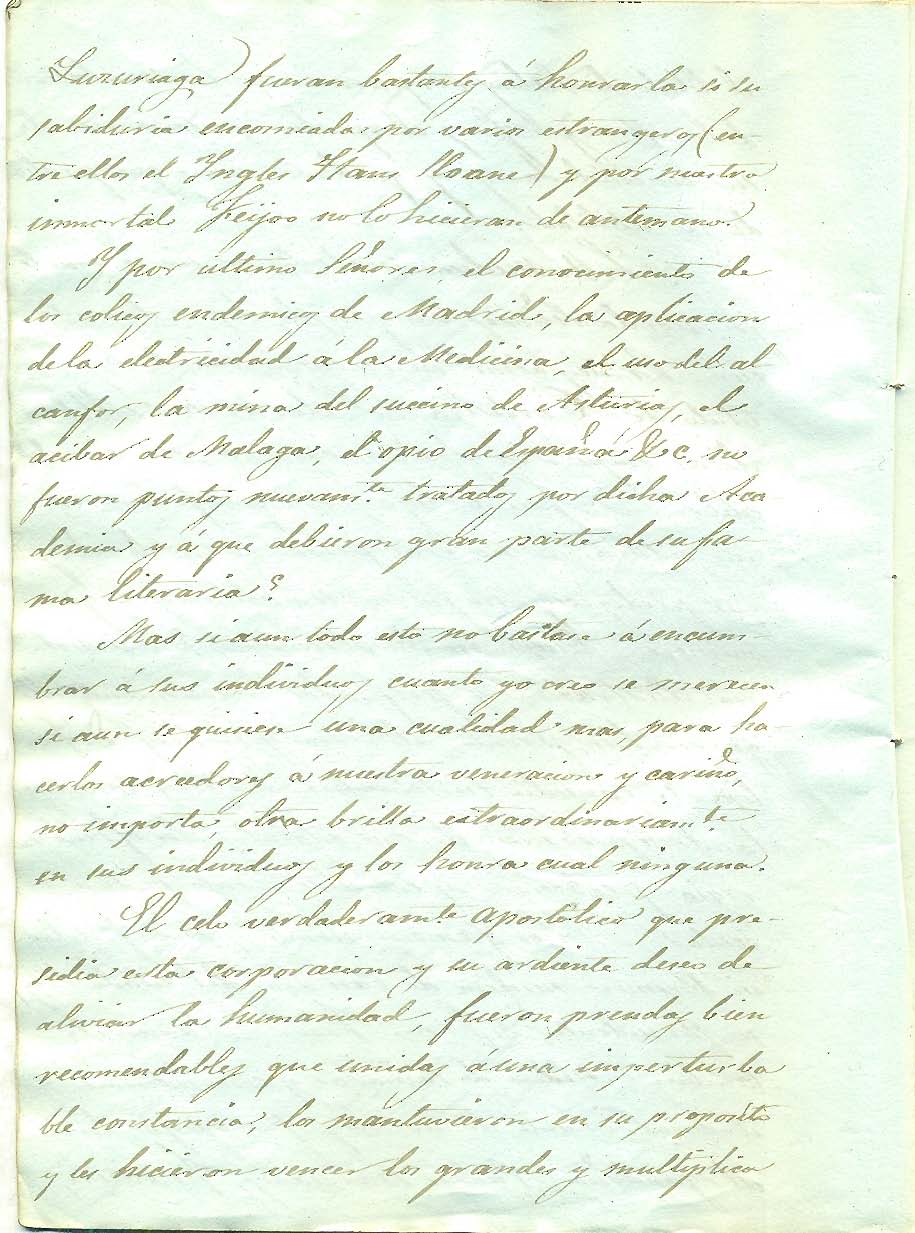 Luzuriaga) fueran bastantes á honrarla si su
sabiduria encomiada por varios estrangeros (en-
tre ellos el Ingles Hans Sloane) y por nuestro
inmortal Feijoo no lo hicieran de antemano.
Y por ultimo Señores, el conocimiento de
los colicos endemicos de Madrid, la aplicacion
de la electricidad á la Medicina, el uso del al
canfor, la mina del succino de Asturias, el
acibar de Malaga, el opio de España &c. no
fueron puntos nuevamte tratados por dicha Aca
demia y á que debieron gran parte de su fa-
ma literaria?
Mas si aun todo esto no bastase á encum-
brar á sus individuos cuanto yo creo se merecen
si aun se quisiese una cualidad mas, para ha-
cerlos acreedores á nuestra veneracion y cariño,
no importa, otra brilla estraordinariamte
en sus individuos y los honra cual ninguna.
El celo verdaderamte apostolico que pre-
sidia esta corporacion y su ardiente deseo de
aliviar la humanidad, fueron prendas bien
recomendables que unidas á una imperturba
ble constancia, los mantuvieron en su proposito
y les hicieron vencer los grandes y multiplica